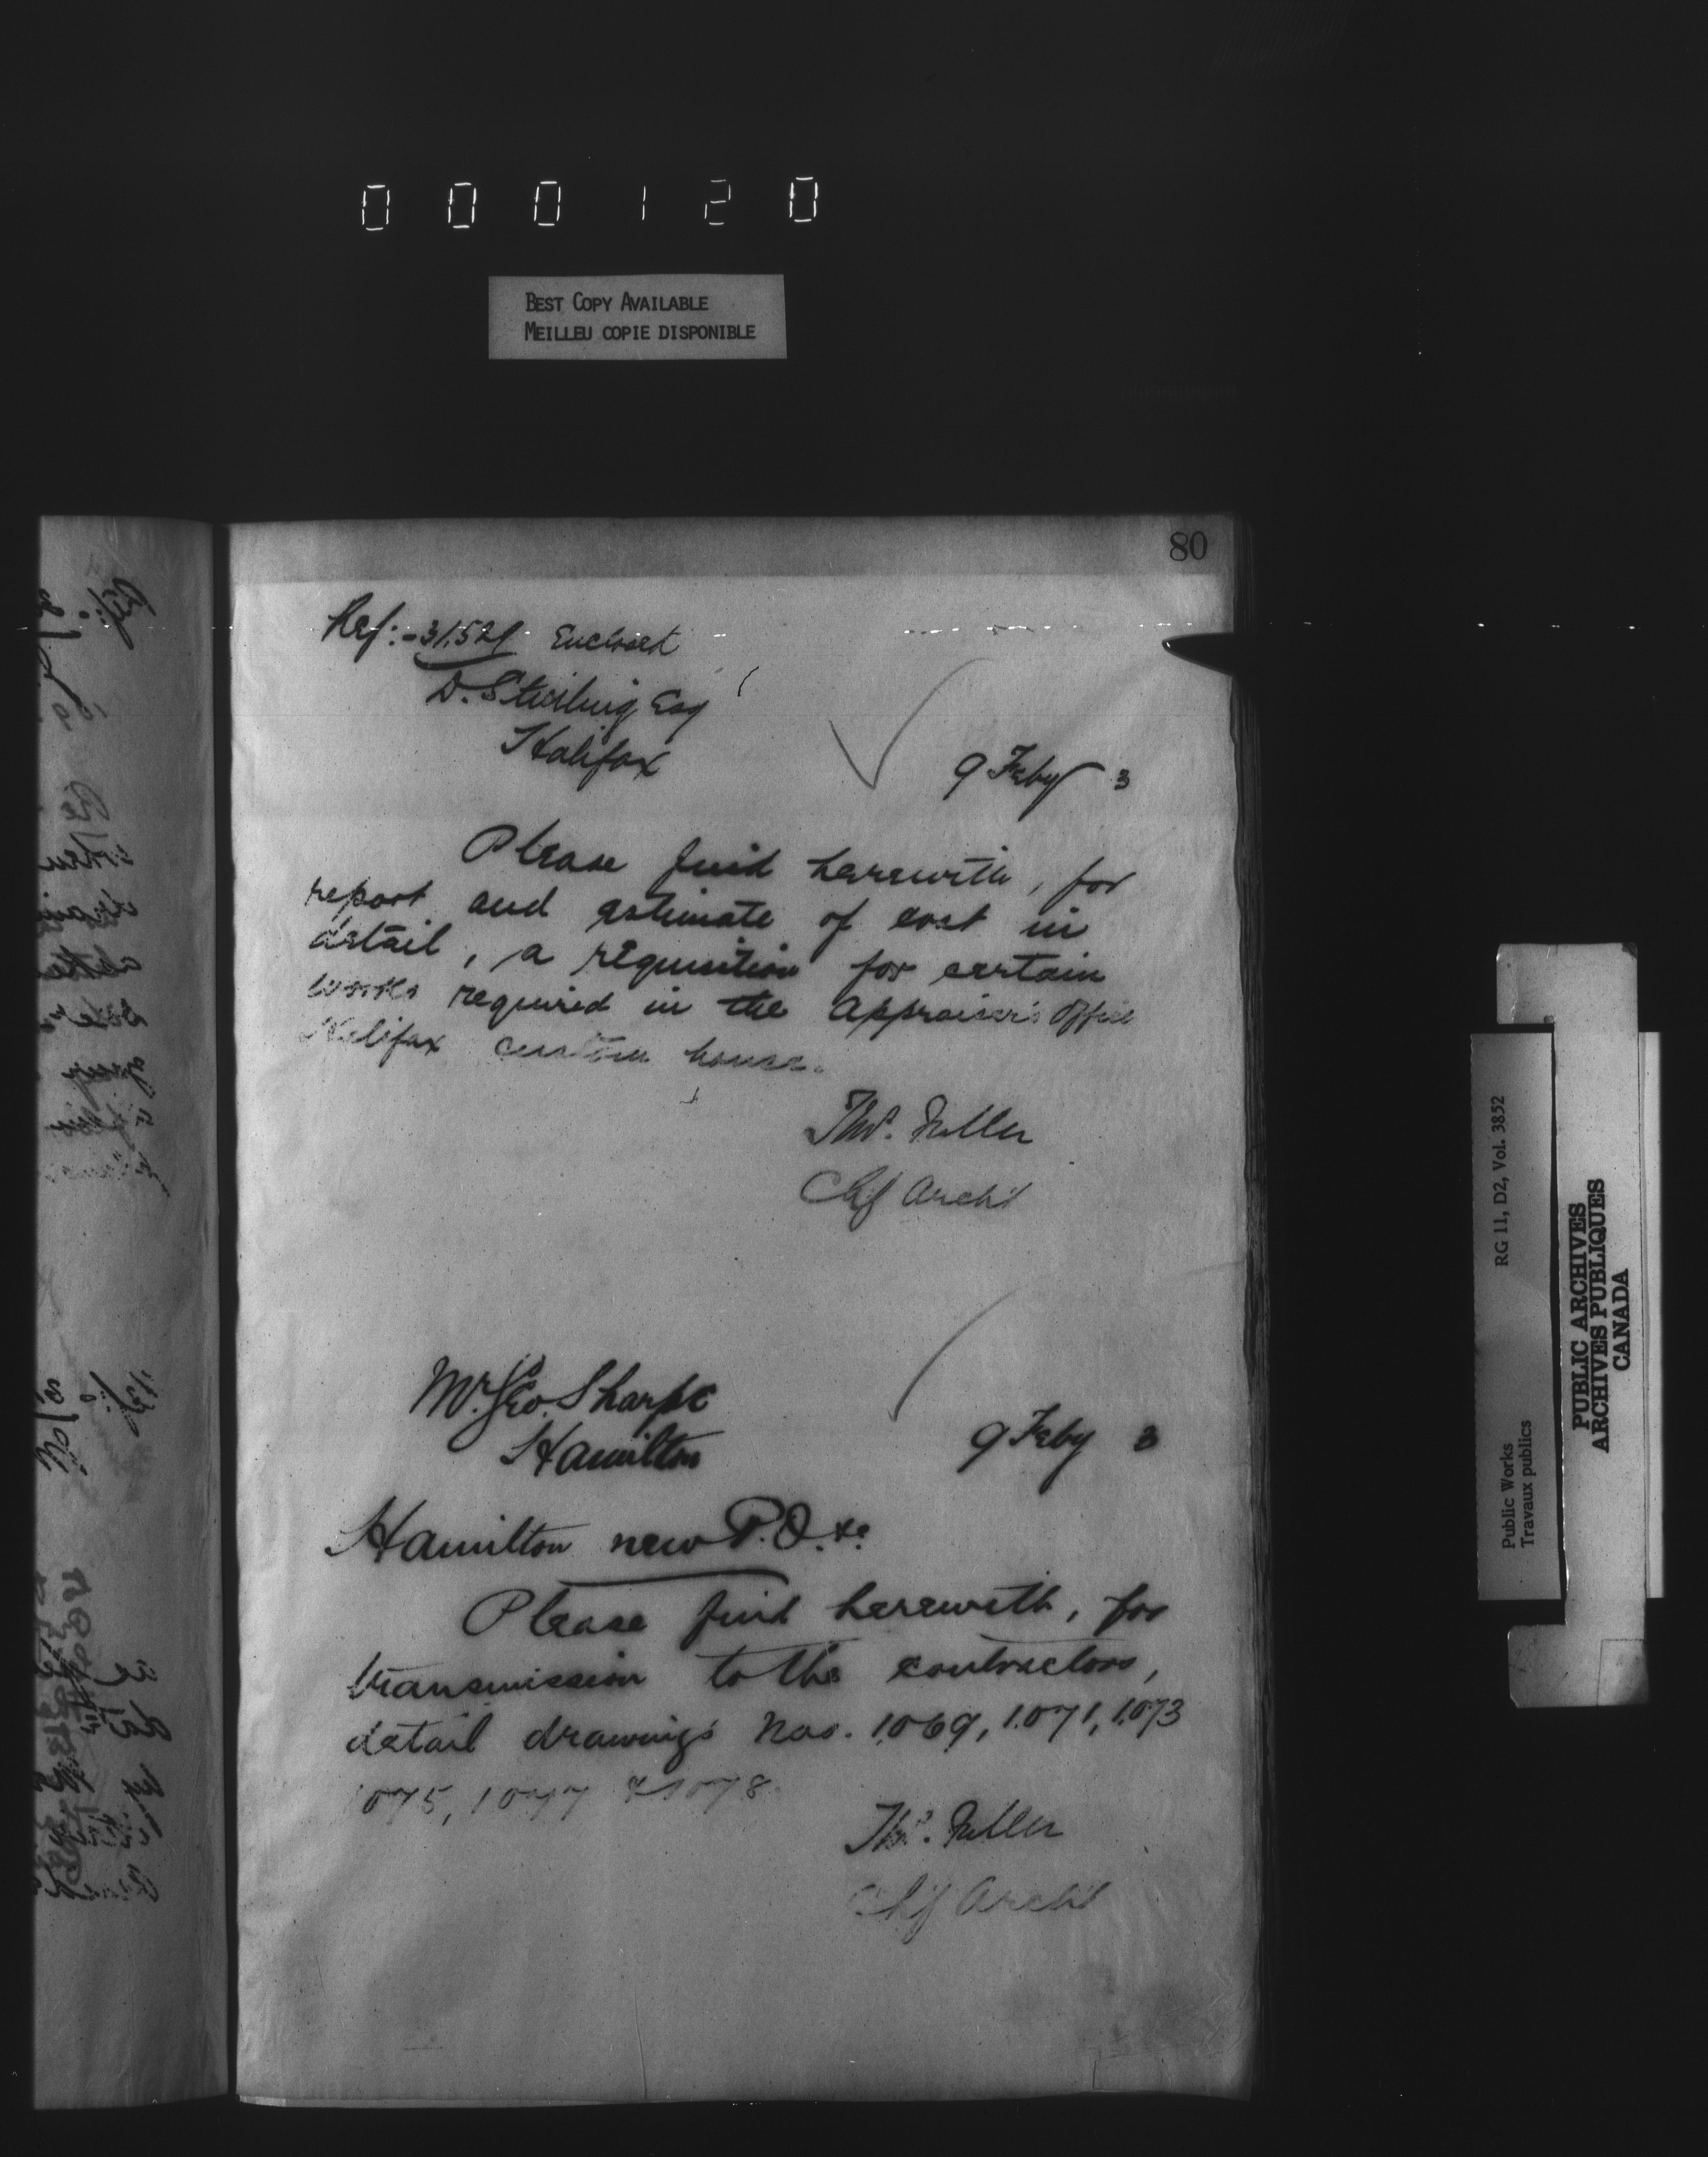 000120
BEST COPY AVAILABLE
MEILLEU COPIE DISPONIBLE
80
Ref:-31,529 Enclosed
D. Stirling Esq
Halifax
9 Feby 3
Please find herewith, for
report and estimate of cost in
detail, a requisition for certain
works required in the Appraiser's Office
Halifax custom house.
Thos. Fuller
Chf Archt
Mr. Geo. Sharpe
Hamilton
9 Feby 3
Hamilton new P.O. &c
Please find herewith, for
transmission to the contractors,
detail drawings Nos. 1069, 1071, 1073
1075, 1077 & 1078
Thos. Fuller
Chf Archt
RG 11, D2, Vol. 3852
Public Works
Travaux publics
PUBLIC ARCHIVES
ARCHIVES PUBLIQUES
CANADA